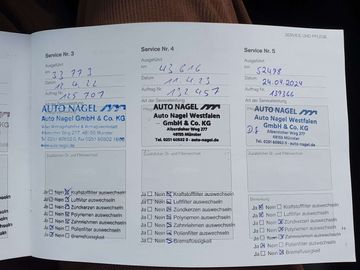 SERVICE UND PFLEGE
Service Nr. 3
Ausgeführt
km 33 773
Datum
Auftrag Nr.
125 707
AUTO NAGEL
Auto Nagel Westfalen
GmbH & Co. KG
Zusätzlicher Öl- und Filterwechsel
Ja Nein Kraftstofffilter auswechseln
Ja Nein Luftfilter auswechseln
Ja Nein Zündkerzen auswechseln
Ja Nein Polyriemen auswechseln
Ja Nein Zahnriemen auswechseln
Ja Nein Pollenfilter auswechseln
Ja Nein Bremsflüssigkeit
Service Nr. 4
Ausgeführt
km 43 616
Datum
Auftrag Nr.
132 457
Art der Serviceleistung
AUTO NAGEL
Auto Nagel Westfalen
GmbH & Co. KG
Albersloher Weg 277
48155 Münster
Zusätzlicher Öl- und Filterwechsel
Ja Nein Kraftstofffilter auswechseln
Ja Nein Luftfilter auswechseln
Ja Nein Zündkerzen auswechseln
Ja Nein Polyriemen auswechseln
Ja Nein Zahnriemen auswechseln
Ja Nein Pollenfilter auswechseln
Ja Nein Bremsflüssigkeit
Service Nr. 5
Ausgeführt
km 52478
Datum 24.04.2024
Auftrag Nr. 139366
Art der Serviceleistung
AUTO NAGEL
Auto Nagel Westfalen
GmbH & Co. KG
Albersloher Weg 277
48155 Münster
Zusätzlicher Öl- und Filterwechsel
Ja Nein Kraftstofffilter auswechseln
Ja Nein Luftfilter auswechseln
Ja Nein Zündkerzen auswechseln
Ja Nein Polyriemen auswechseln
Ja Nein Zahnriemen auswechseln
Ja Nein Pollenfilter auswechseln
Ja Nein Bremsflüssigkeit